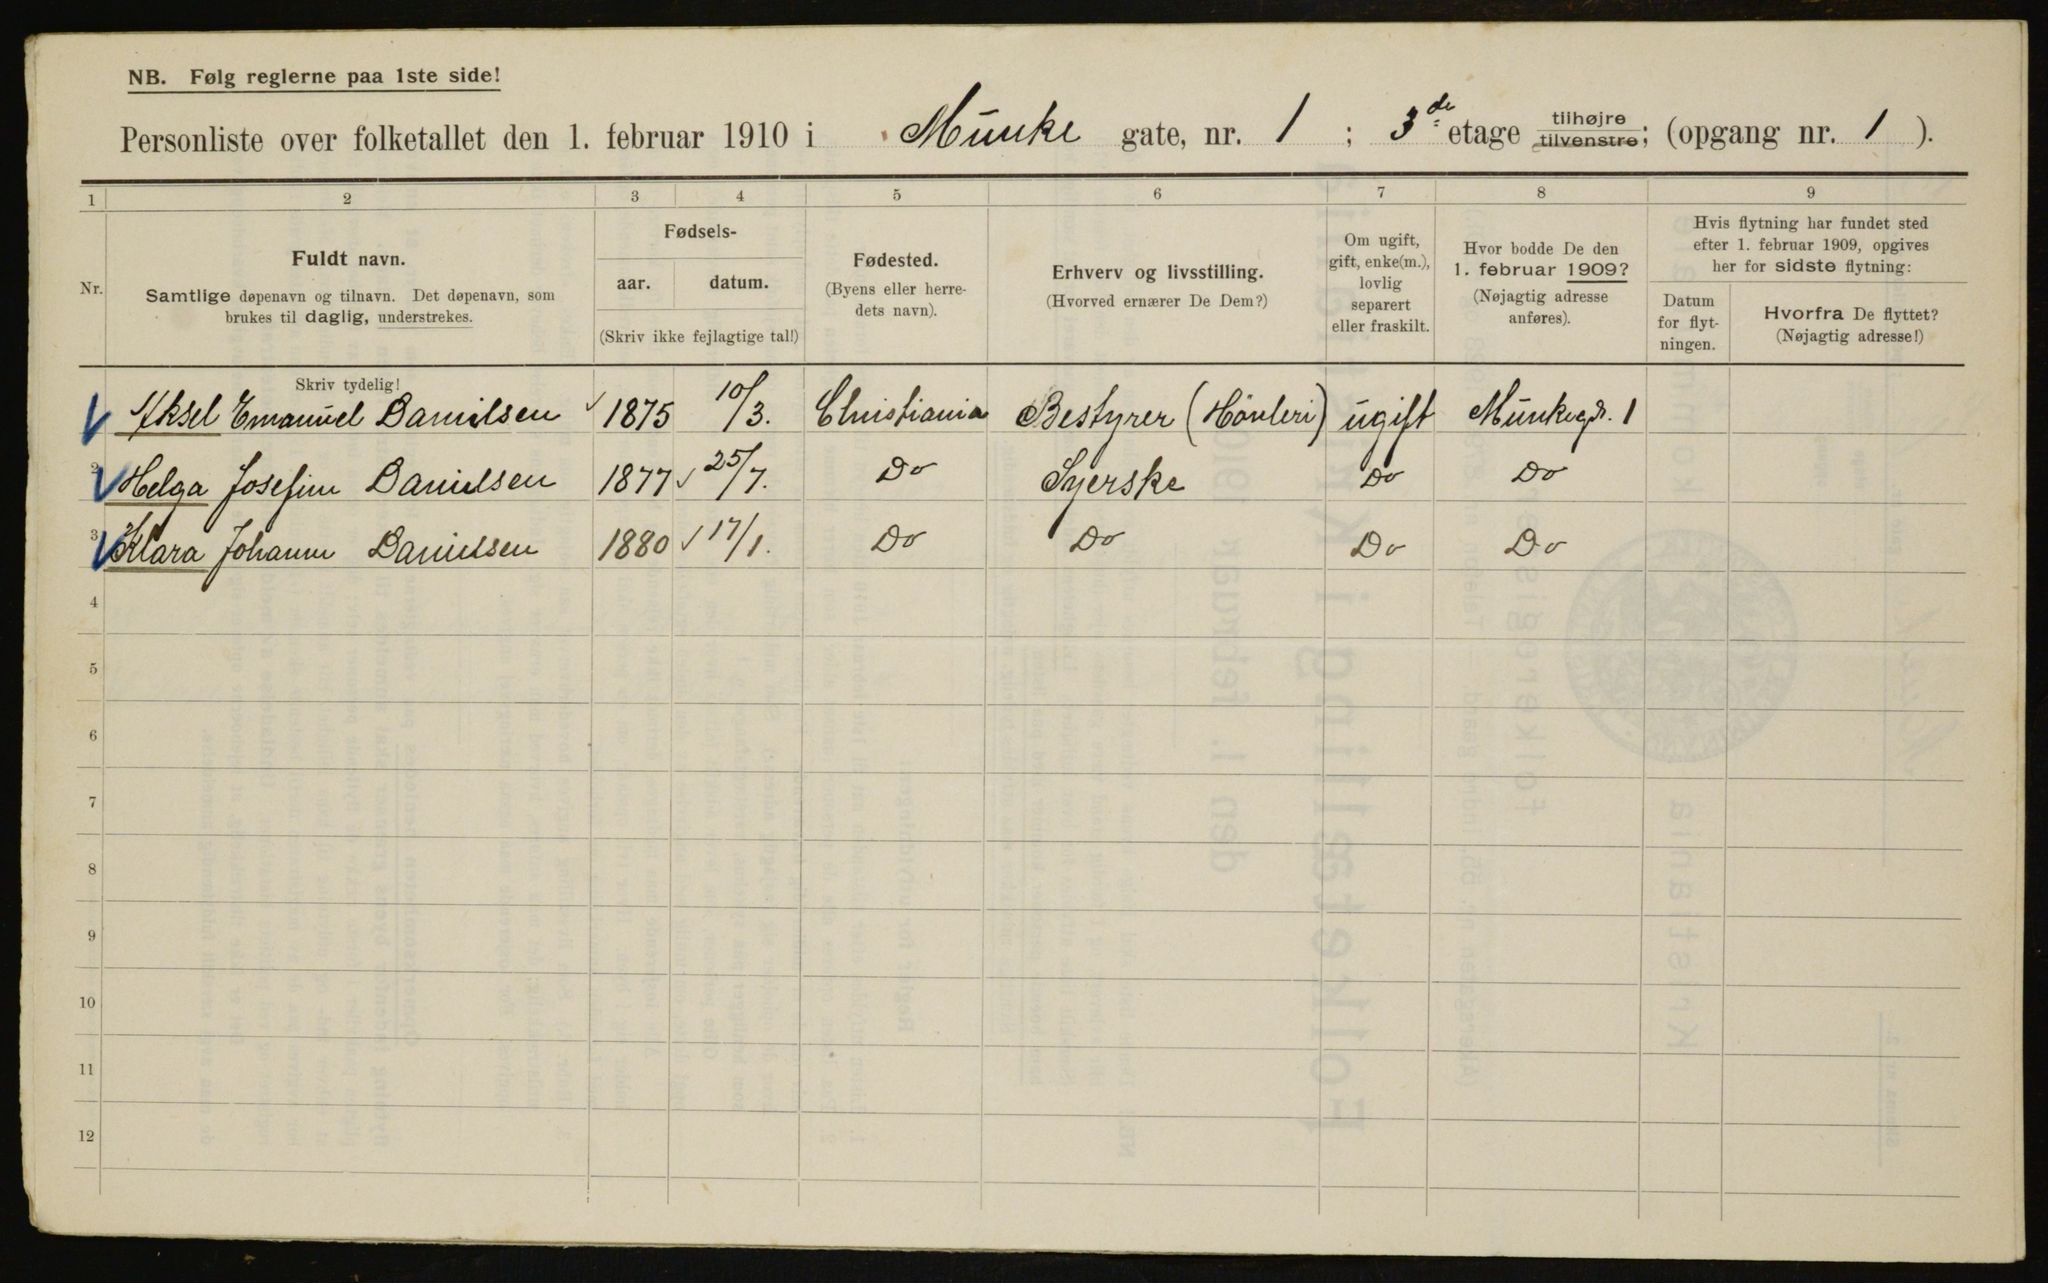 NB. Følg reglerne paa 1ste side!
Personliste over folketallet den 1. februar 1910 i Munke gate, nr. 1 ; 3de etage tilhøjre tilvenstre; (opgang nr. 1 ).
1 2 3 4 5 6 7 8 9
Nr.
Fuldt navn.
Samtlige døpenavn og tilnavn. Det døpenavn, som
brukes til daglig, understrekes.
Fødsels-
aar. datum.
(Skriv ikke fejlagtige tal!)
Fødested.
(Byens eller herre-
dets navn).
Erhverv og livsstilling.
(Hvorved ernærer De Dem?)
Om ugift,
gift, enke(m.),
lovlig
separert
eller fraskilt.
Hvor bodde De den
1. februar 1909?
(Nøjagtig adresse
anføres).
Hvis flytning har fundet sted
efter 1. februar 1909, opgives
her for sidste flytning:
Datum
for flyt-
ningen.
Hvorfra De flyttet?
(Nøjagtig adresse!)
Skriv tydelig!
Aksel Emanuel Danielsen 1875 10/3. Christiania Bestyrer (Hövleri) ugift Munkegd. 1
2 Helga Josefine Danielsen 1877 25/7. Do Syerske Do Do
3 Klara Johanne Danielsen 1880 17/1. Do Do Do Do
4
5
6
7
8
9
10
11
12